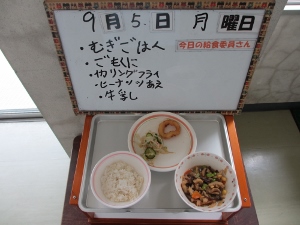 9月5日 月曜日
今日の給食委員さん
・むぎごはん
・ごもくに
・カリングフライ
・ピーナッツあえ
・牛乳